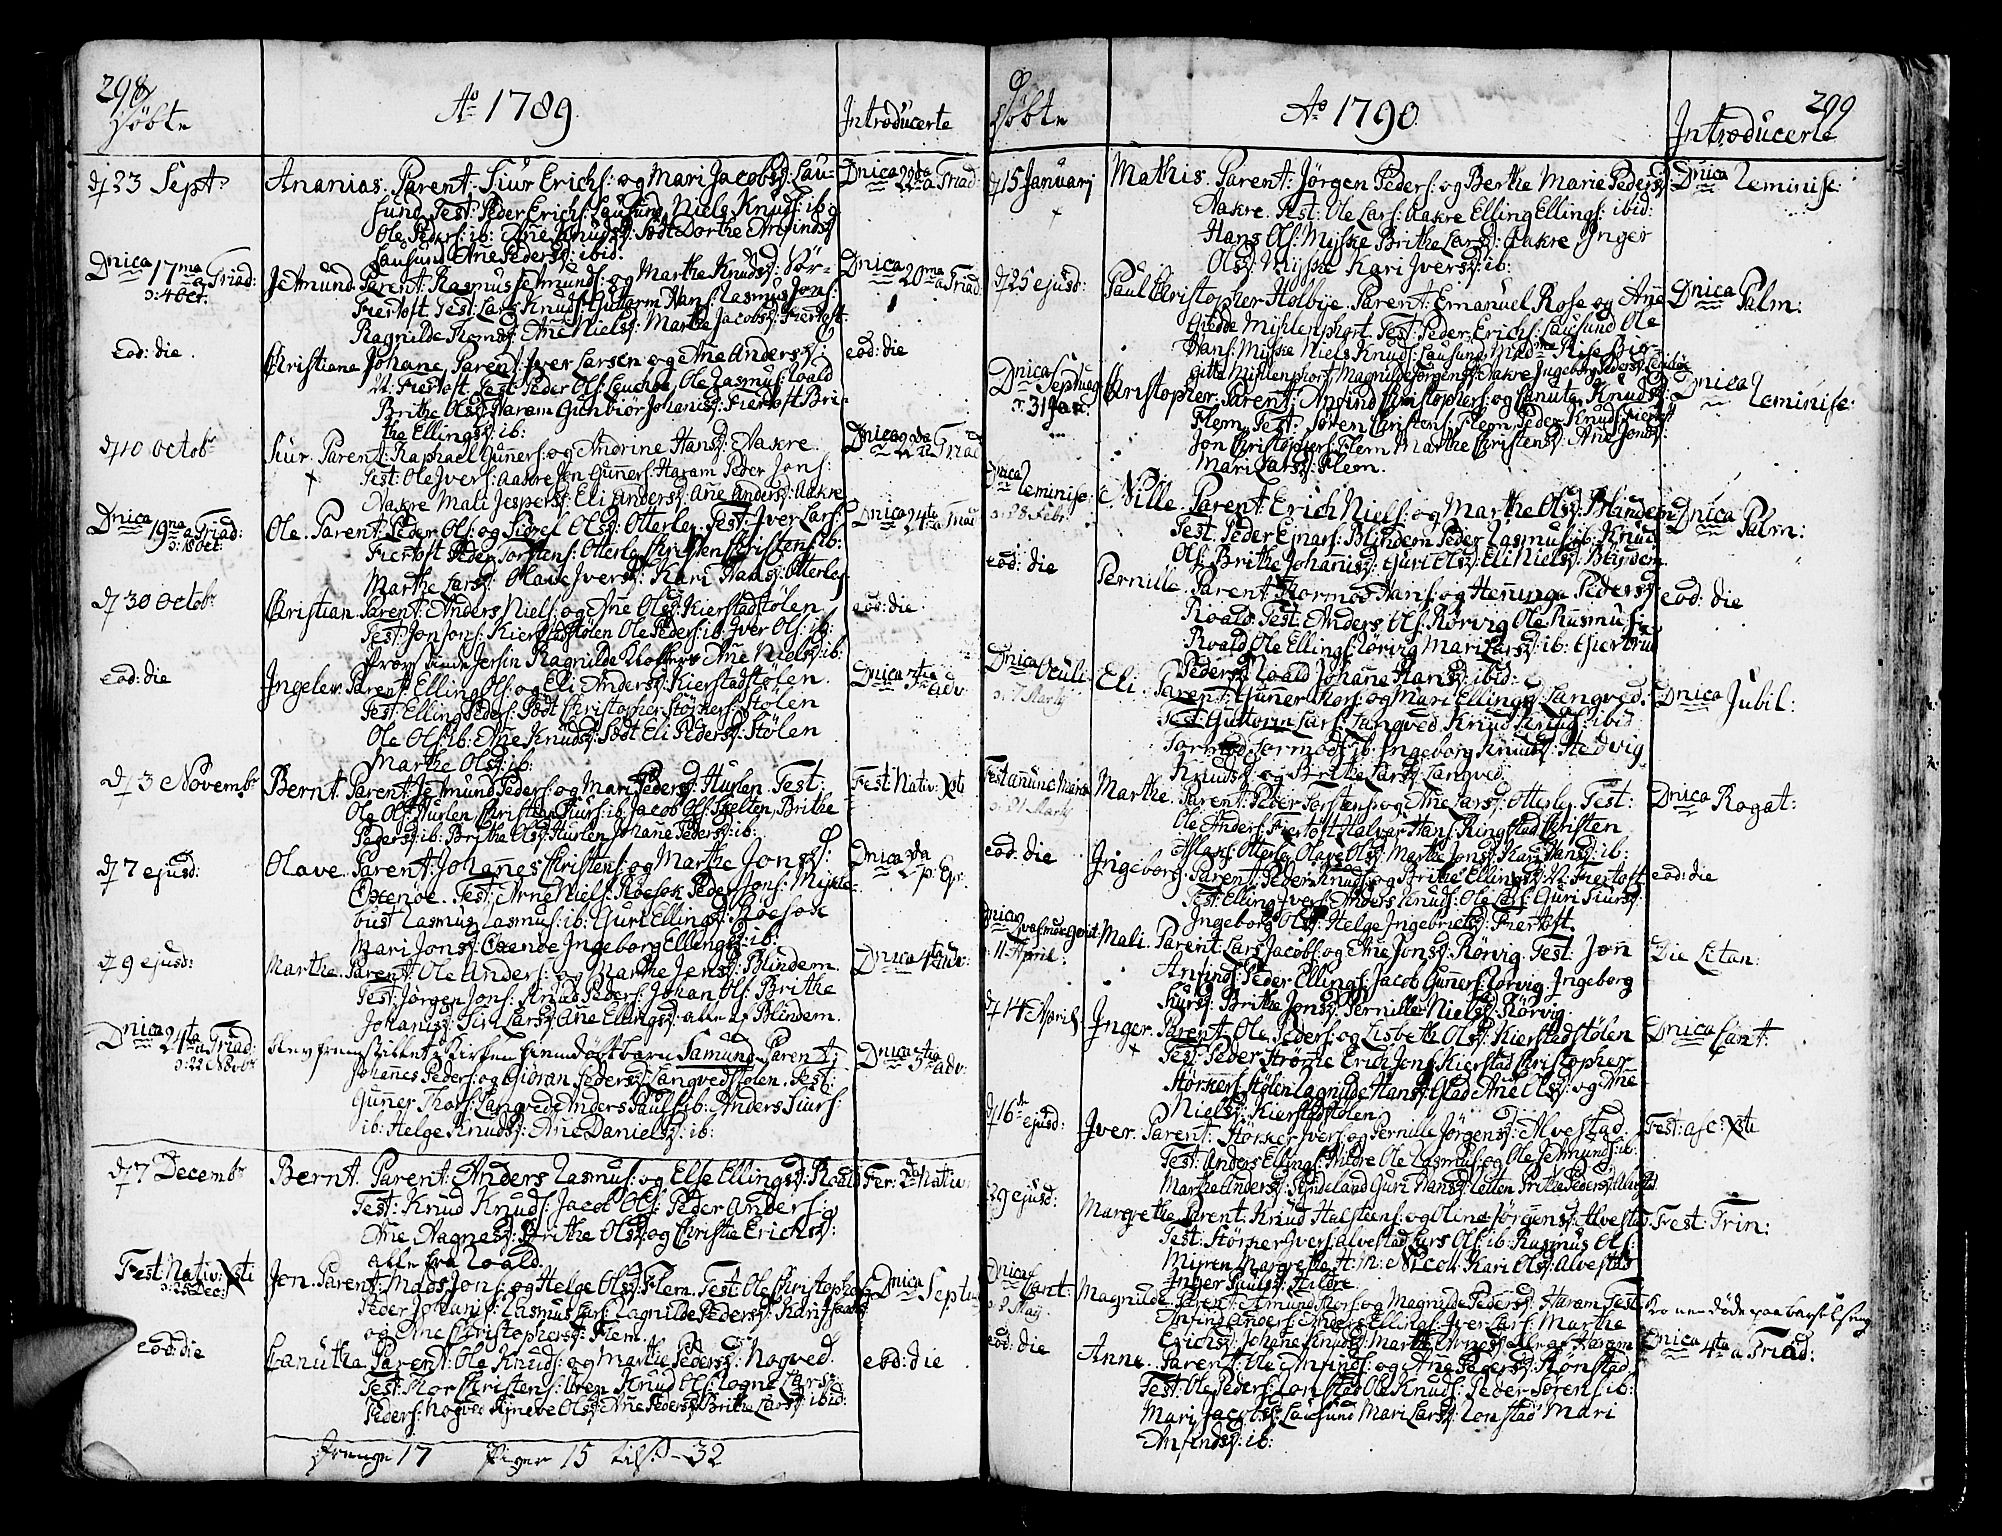 298
Døbte
Ao 1789.
Introducerte
d 23 Septr
Ananias. Parent: Siur Erichs: og Mari Jacobsd: Lau-
sund. Test: Peder Erichs: Lausund, Niels Knuds: ib:
Ole Peders: ib: Ane Knudsd: Sødt Dorthe Amundsd:
Lausund Ane Pedersd: ibid.
Dnica 22da a Triad:
Dnica 17ma a Triad:
ɔ: 4 Oct.
Jetmund. Parent: Rasmus Jetmunds: og Marthe Knudsd:
Fiertoft. Test: Lars Knuds: Guttorm Hans: Rasmus Jons:
Fiertoft
Ragnilde Ane Nielsd: Marthe Jacobsd:
Dnica 20ma a Triad:
eod: die.
Christiana Johane. Parent: Iver Larsen og Ane Andersd:
N: Fiertoft. Test: Peder Ols: Ole Rasmus: Roald
Brithe Olsd: Haram Gunbiør Johanisd: Fiertoft Bri-
the Ellingsd: ib:
eod: die
d 10 Octobr
Siur. Parent: Raphael Guners: og Andrine Hansd: Aakre.
Test: Ole Ivers: Aakre Jon Guners: Haram Peder Jons:
Aakre Mali Jespersd: Eli Andersd: Ane Andersd: Aakre
Dnica 22da a Triad
Dnica 19na a Triad:
ɔ: 18 Oct:
Ole. Parent: Peder Ols: og Sidsel Olsd: Otterlei. Test: Iver Lars:
Fiertoft Peder Torstens: Otterlei Christen Christens: ib:
Marthe Larsd: Olave Iversd: Kari Hansd: Otterlei
Dnica 24ta a Triad
d 30 Octobr
Christian. Parent: Anders Niels: og Ane Olsd: Kierstadstølen
Test: Jon Jons: Kierstadstølen Ole Peders: ib: Iver Ols: ib:
Ragnilde Ane Nielsd: ib:
eod: die
eod: die
Ingelev. Parent: Elling Ols: og Eli Andersd: Kierstadstølen.
Test: Elling Peders: Sødt Christopher Størkers: Stølen
Ole Ols: ib: Ane Knudsd: Sødt Eli Pedersd: Stølen
Marthe Olsd: ib:
Dnica 3tia adv.
d 3 Novembr
Bernt. Parent: Jetmund Peders: og Mari Pedersd: Hurlen. Test:
Ole Ols: Hurlen, Christian ib: Jacob Ols: Skelten, Brithe
Pedersd: ib: Brithe Olsd: Hurlen Johane Pedersd: ib:
Fest: Nativ: Xsti
d 7 ejusd:
Olave. Parent: Johannes Christens: og Marthe Jonsd:
Oxenøe. Test: Arne Niels: Roesok Peder Jons: Mykle-
bust Rasmus Rasmus: ib: Guri Ellingsd: Roesok
Mari Jonsd: Oxenøe Ingeborg Ellingsd: ib:
Dnica 2da p: Ep:
d 9 ejusd:
Marthe. Parent: Ole Anders: og Marthe Jensd: Blindem.
Test: Jørgen Jons: Knud Peders: Johan Ols: Brithe
Johanisd: Siri Larsd: Ane Ellingsd: alle af Blindem.
Dnica 4ta adv:
Dnica 24ta a Triad:
ɔ: 22 Novbr
blev fremstillet i Kirken hiemdøbt barn Samund. Parent:
Johannes Peders: og Pedersd: Langvedstølen. Test:
Guner Thors: Langved Anders Pauls: ib: Anders Siurs:
ib: Helge Knudsd: Ane Danielsd: ib:
Dnica 3tia adv:
d 7 Decembr
Bernt. Parent: Anders Rasmus: og Else Ellingsd: Roald
Test: Knud Knuds: Jacob Ols: Peder Anders:
Ane Magnesd: Brithe Olsd: og Christie Erichsd:
alle fra Roald.
Fer: 2da Nativ:
Fest: Nativ: Xsti
ɔ: 25 Dec:
Jon. Parent: Mads Jons: og Helge Olsd: Flem. Test: Ole Christophers:
Peder Johans: Rasmus Lars: Ragnilde Pedersd: Kari
og Ane Christophersd: Flem.
Dnica Septu
eod: die
Canutha. Parent: Ole Knuds: og Marthe Pedersd: Nogved.
Test: Thor Christens: Knud Ols: Rogne Lars
Peders: Nogved Synneve Olsd: Ane Pedersd: Brithe Larsd: ibid:
eod: die
Drenge 17 Piger 15 tils: 32
299
Døbte
Ao 1790.
Introducerte
d 15 Januarj
Mathis. Parent: Jørgen Peders: og Berthe Marie Pedersd:
Aakre. Test: Ole Lars: Aakre Elling Ellings: ibid:
Hans Ols: Myske Brithe Larsd: Aakre, Inger
Olsd: Myske Kari Iversd: ib:
Dnica Reminisc:
d 25 ejusd:
Paul Christopher Holbye. Parent: Emanuel Rose og Ane
Giedde Myhlenphort. Test: Peder Erichs: Lausund Ole
Hans: Myske Niels Knuds: Lausund, Rose Bir-
gitte Myhlenphort, Magnilde Jørgensd: Aakre Ingeborg Pedersd:
Dnica Palm:
Dnica Septuag
ɔ: 31 Jan:
Christopher. Parent: Anfind Christophers: og Canuta Knudsd:
Flem. Test: Søren Carstens: Flem Peder Knuds: Fiertoft
Jon Christophers: Flem Marthe Christensd: Ane Jonsd:
Mari Larsd: Flem.
Dnica Reminisc:
Dnica Reminisc:
ɔ: 28 Febr:
Nille. Parent: Erich Niels: og Marthe Olsd: Blindem
Test: Peder Ejnars: Blindem Peder Rasmus: ib: Knud
Ols: Brithe Johanisd: Guri Olsd: Eli Nielsd: Blindem
Dnica Palm:
eod: die
Pernille. Parent: Tormod Hans: og Henninge Pedersd:
Roald. Test: Anders Ols: Rørvig Ole Rasmus:
Roald Ole Ellings: Rørvig Mari Larsd: ib: Giertrud
Pedersd: Roald Johane Hansd: ibid:
eod: die
Dnica Oculi
ɔ: 7 Martj
Eli. Parent: Guner Thors: og Mari Ellingsd: Langved.
Test: Guttorm Lars: Langved Knud Larsd: ibid
Tormod Tormods: ib: Ingeborg Knudsd: Hedvig
Knudsd: og Brithe Larsd: Langved.
Dnica Jubil:
Fest: anunc Mariæ
ɔ: 21 Martj
Marthe. Parent: Peder Torstens: og Ane Larsd: Otterlei. Test:
Ole Anders: Fiertoft Halvar Hans: Ringstad Christen
Aslaks: Otterlei Olave Olsd: Marthe Jonsd: Kari Hansd: ib:
Dnica Rogat:
eod: die
Ingeborg. Parent: Peder Knuds: og Brithe Ellingsd: N: Fiertoft.
Test: Elling Ivers: Anders Knuds: Ole Lars: Guri Siursd:
Ingeborg Olsd: Helge Ingebrictsd: Fiertoft.
eod: die
Dnica Qvasimodogenit:
ɔ: 11 April:
Mali. Parent: Lars Jacobs: og Ane Jonsd: Rørvig. Test: Jon
Anfinds: Peder Ellings: Jacob Guners: Rørvig. Ingeborg
Brithe Jonsd: Pernille Nielsd: Rørvig.
Die Litan:
d 14 April:
Inger. Parent: Ole Peders: og Lisbeth Olsd: Kierstadstølen
Test: Peder Strømme Erich Jons: Kierstad Christopher
Størkers: Stølen Ragnilde Hansd: Ulstad Ane Olsd: og Ane
Nielsd: Kierstadstølen
Dnica Cant:
d 16de ejusd:
Iver. Parent: Størker Ivers: og Pernille Jørgensd: Alvestad.
Test: Anders Ellings: Hildre Ole Rasmus: og Ole Jetmunds: ib:
Marthe Andersd: Syndeland Guri Hansd: Leiten Brithe Pedersd: Alvestad.
Fest: asc: Xsti
29 ejusd:
Margrethe. Parent: Knud Halsteens: og Oline Jørgensd: Alvestad
Test: Størker Ivers: Alvestad Lars Ols: ib: Rasmus Ols:
Myren Margretha H: M: Nicol: Kari Olsd: Alvestad
Inger Paulsd: Hildre
Fest: Trin:
Dnica Cant:
ɔ: 2 Maij.
Magnilde. Parent: Amund Thors: og Magnilde Pedersd: Haram. Test:
Anfind Anders: Anders Ellings: Iver Lars: Marthe
Erichsd: Johane Knudsd: Marthe Haram
Konen døde paa barselseng
eod: die
Anne. Parent: Ole Anfinds: og Ane Pedersd: Rønstad
Test: Ole Peders: Rønstad Ole Knuds: Peder Sørens: ib:
Mari Jacobsd: Lausund Mari Larsd: Rønstad Mari
Anfindsd: ib:
Dnica 4ta a Triad: